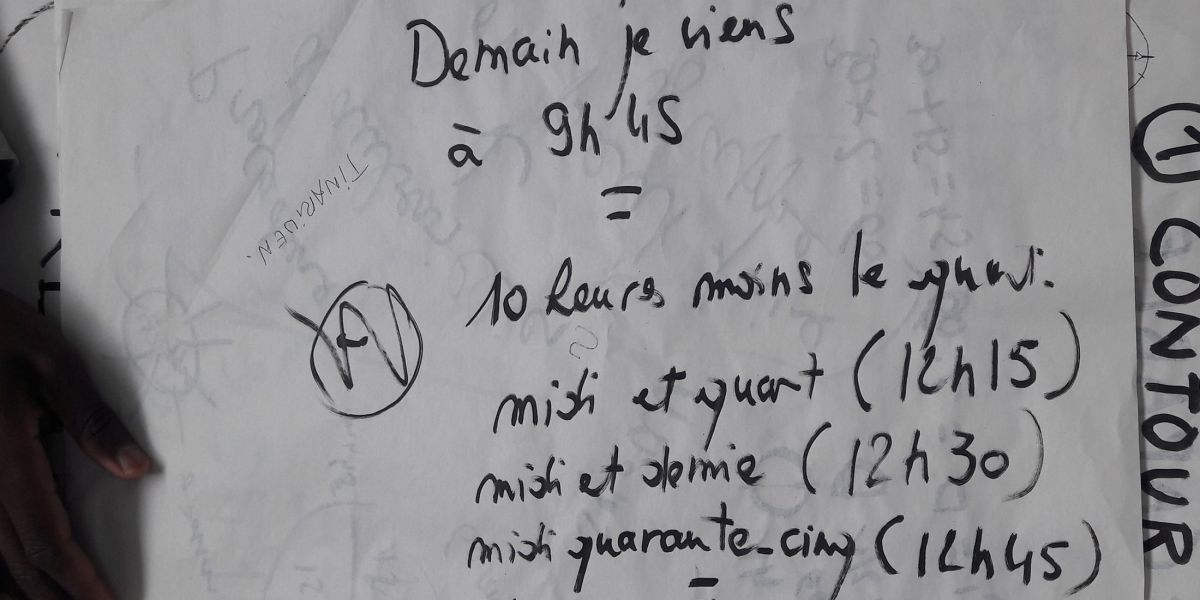 Demain je viens
à 9h45
=
10 heures moins le quart.
midi et quart (12h15)
midi et demie (12h30)
midi quarante-cinq (12h45)
=
TINARIDEN.
1 CONTOUR